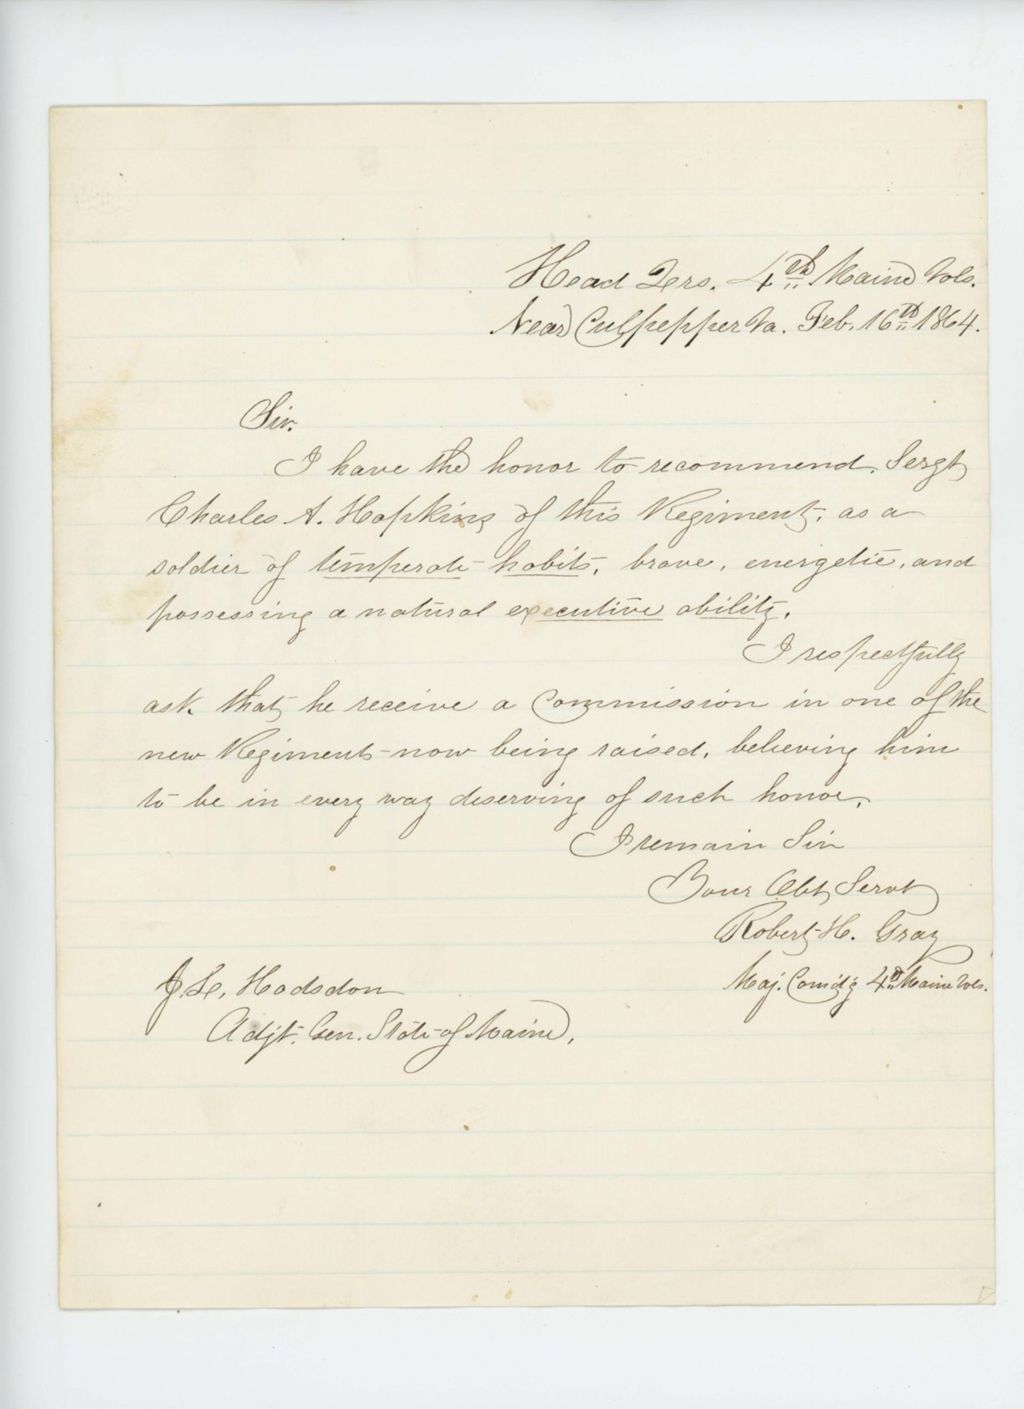 Head Qrs. 4th Maine Vols.
Near Culpepper Va. Feb. 16th 1864.
Sir.
I have the honor to recommend, Sergt
Charles A. Hopkins of this Regiment, as a
soldier of temperate habits, brave, energetic, and
possessing a natural executive ability.
I respectfully
ask that he receive a Commission in one of the
new Regiments now being raised, believing him
to be in every way deserving of such honor.
I remain Sir
Your Obt Servt
Robert H. Gray
Maj. Comdg 4th Maine Vols.
J. L. Hodsdon
Adjt. Gen. State of Maine,